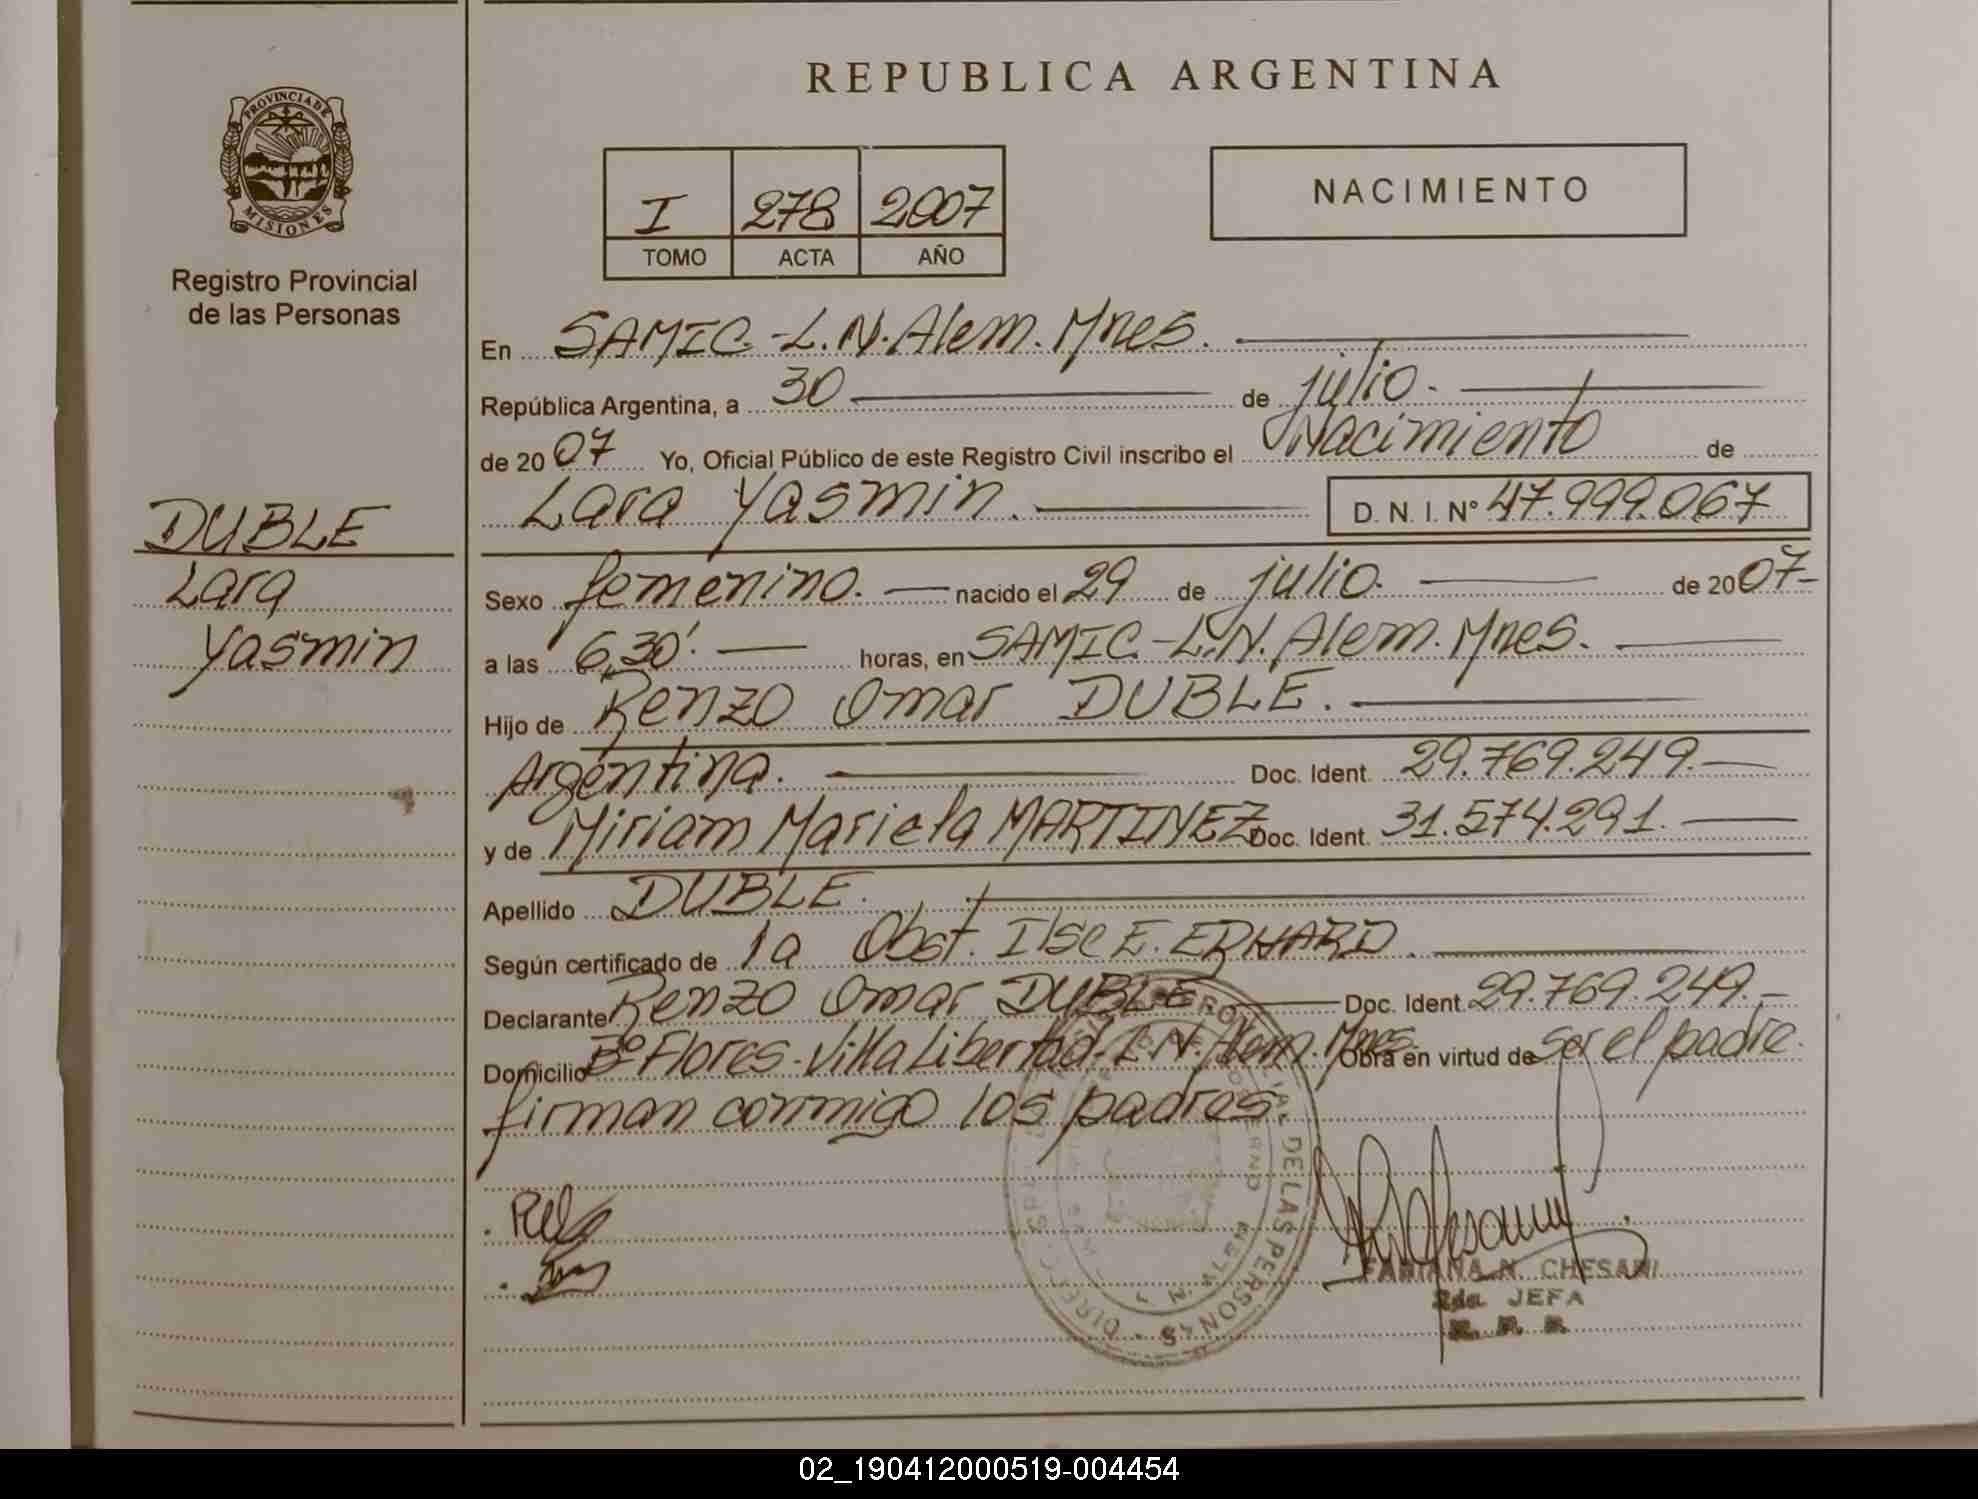 REPUBLICA ARGENTINA
PROVINCIA DE
MISIONES
Registro Provincial
de las Personas
I 278 2007
TOMO ACTA AÑO
NACIMIENTO
En SAMIC.-L.N.Alem.Mnes.
República Argentina, a 30 de julio.
de 2007 Yo, Oficial Público de este Registro Civil inscribo el Nacimiento de
Lara Yasmin. D. N. I. Nº 47.999.067
DUBLE
Lara
Yasmin
Sexo femenino. nacido el 29 de julio. de 2007-
a las 6,30'. horas, en SAMIC.-L.N. Alem. Mnes.
Hijo de Renzo Omar DUBLE.
Argentina. Doc. Ident. 29.769.249.
y de Miriam Mariela MARTINEZ Doc. Ident. 31.574.291.
Apellido DUBLE.
Según certificado de la Obst. Ilse E. ERHARD.
Declarante Renzo Omar DUBLE Doc. Ident. 29.769.249.-
Domicilio Bº Flores-Villa Libertad-L.N.Alem.Mnes. Obra en virtud de ser el padre.
firman conmigo los padres
DE LAS PERSONAS
FABIANA N. CHESANI
2da. JEFA
02_190412000519-004454